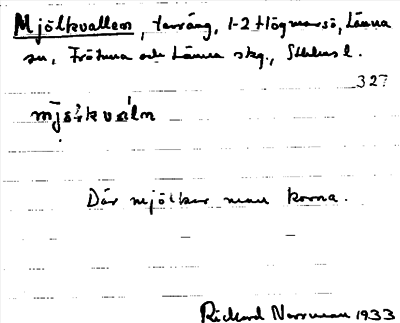 Mjölkvallen, terräng, 1-2 Högmarsö, Länna
sn, Frötuna och Länna skg., Sthlms l.
327
Där mjölkar man korna.
Rickard Norrman 1933